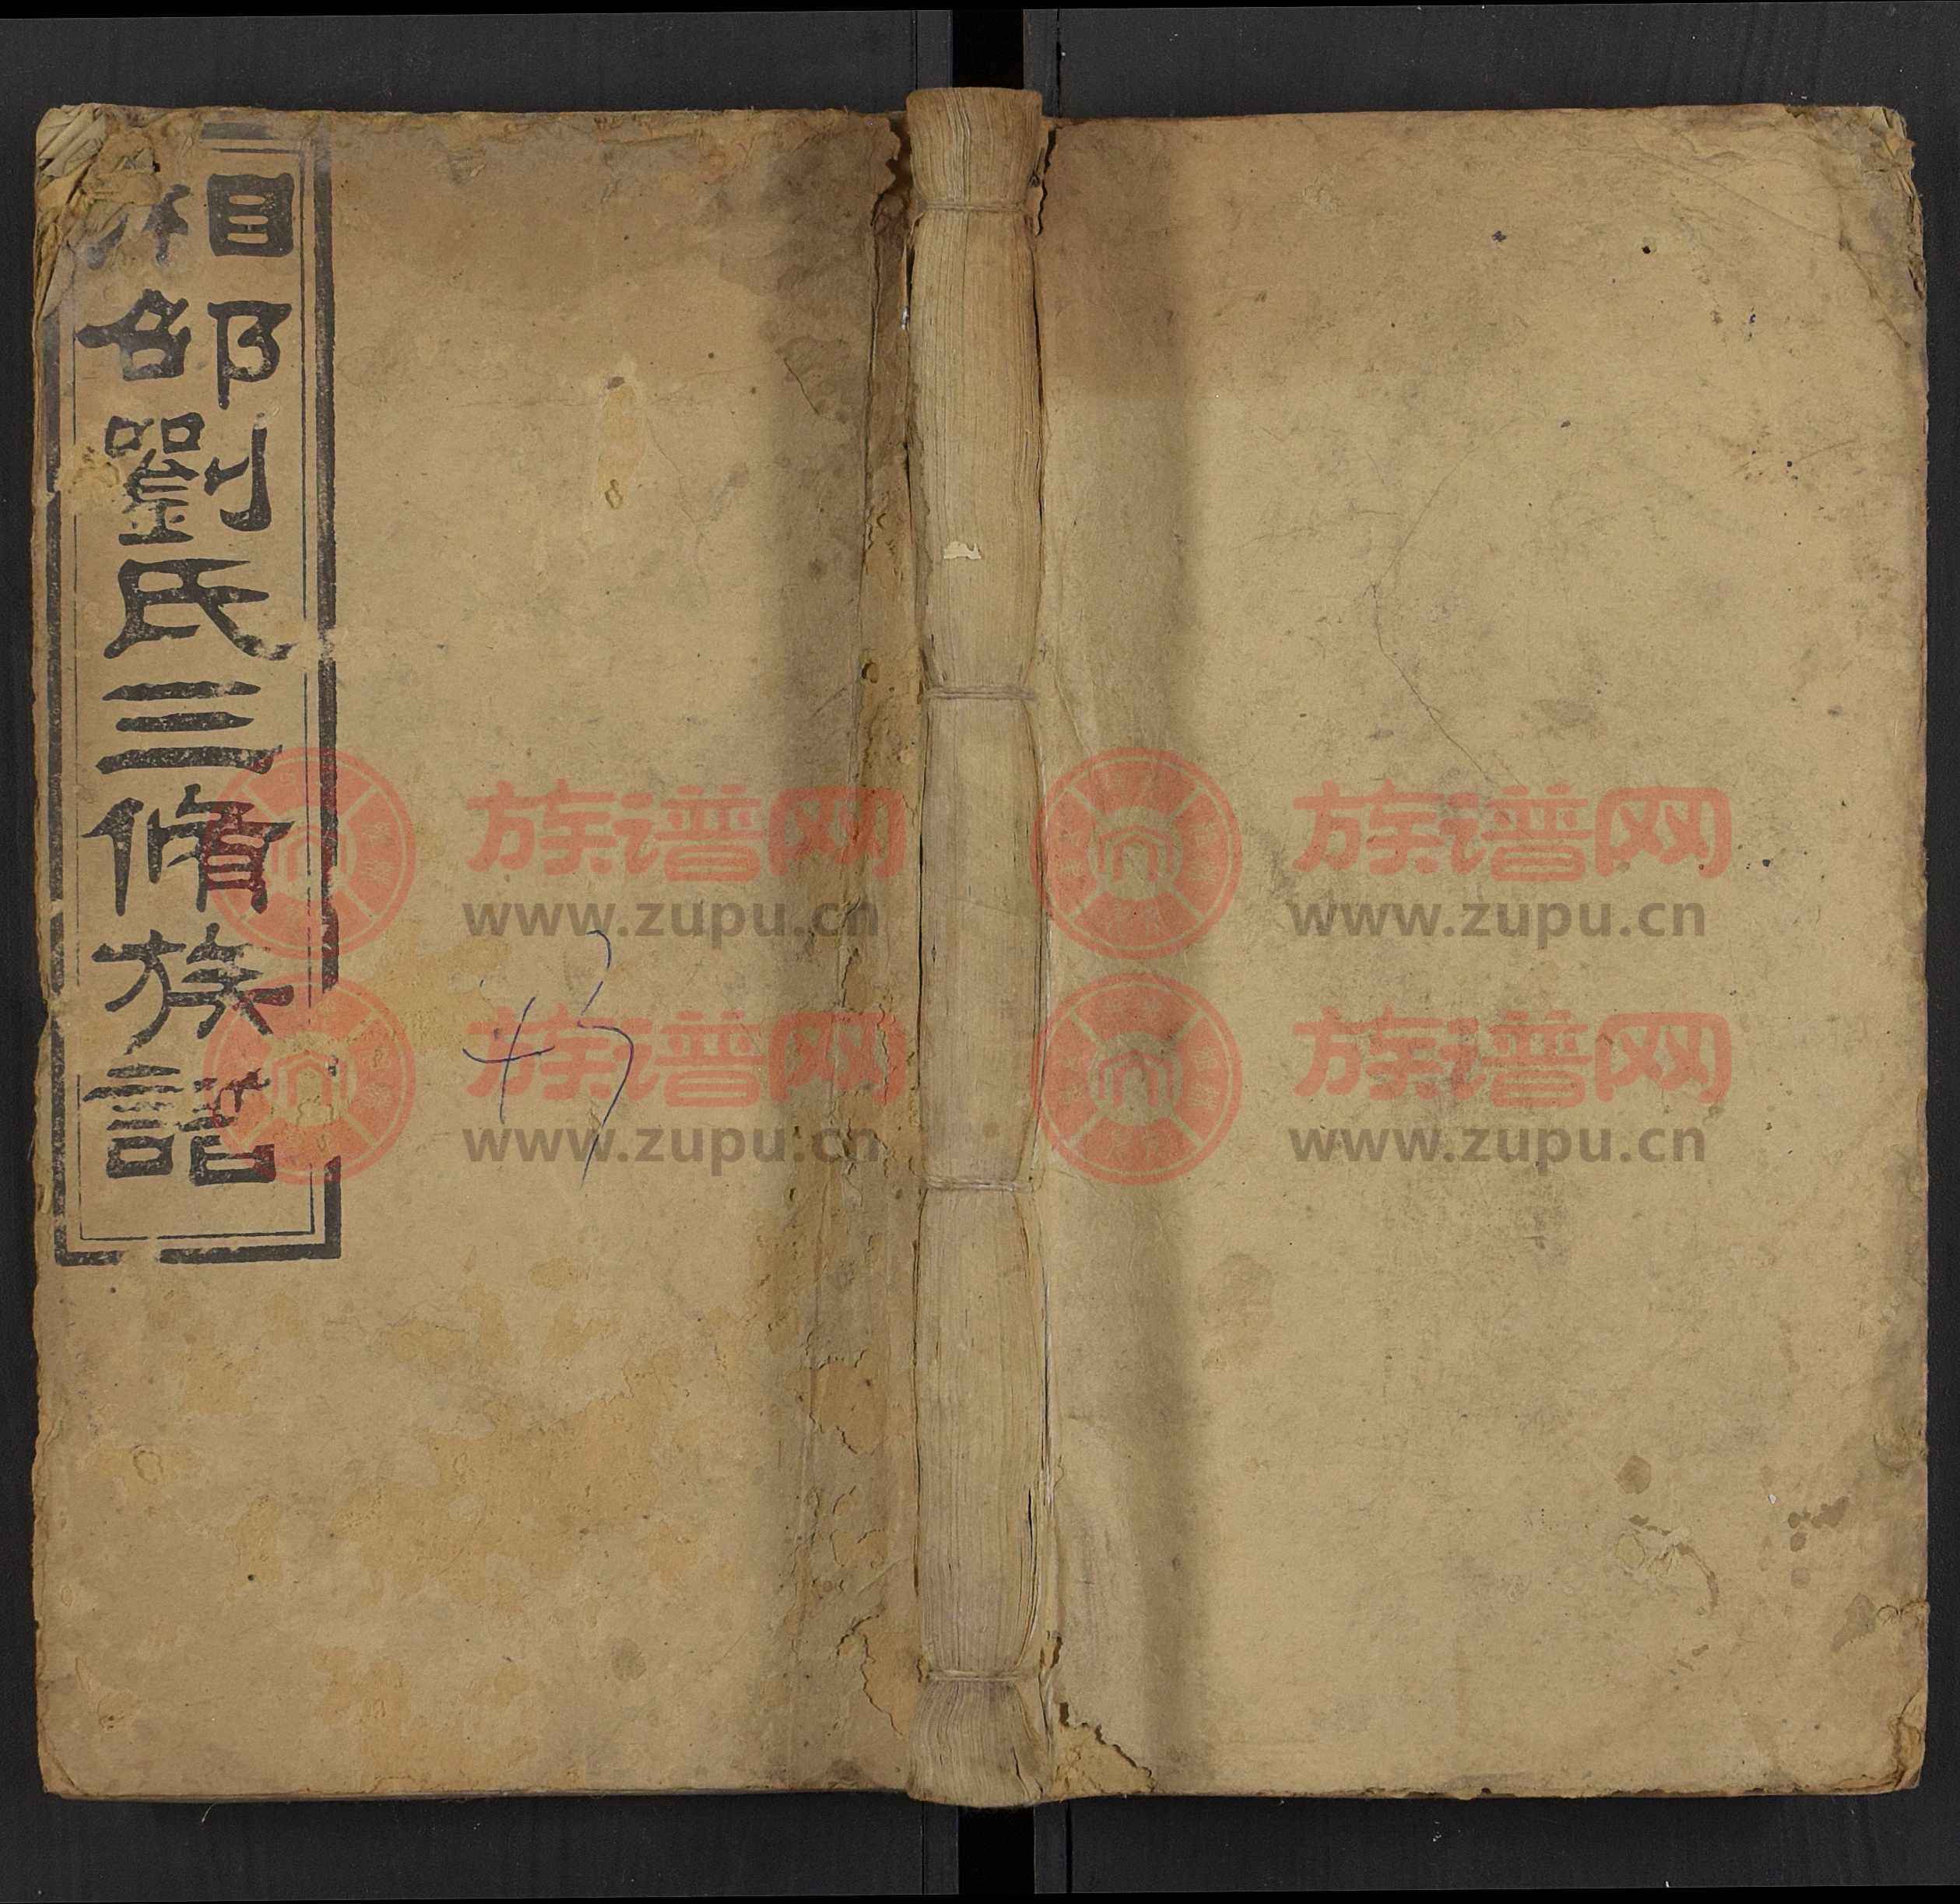 湘邵劉氏三脩族譜
43
族谱网
www.zupu.cn
族谱网
www.zupu.cn
族谱网
www.zupu.cn
族谱网
www.zupu.cn